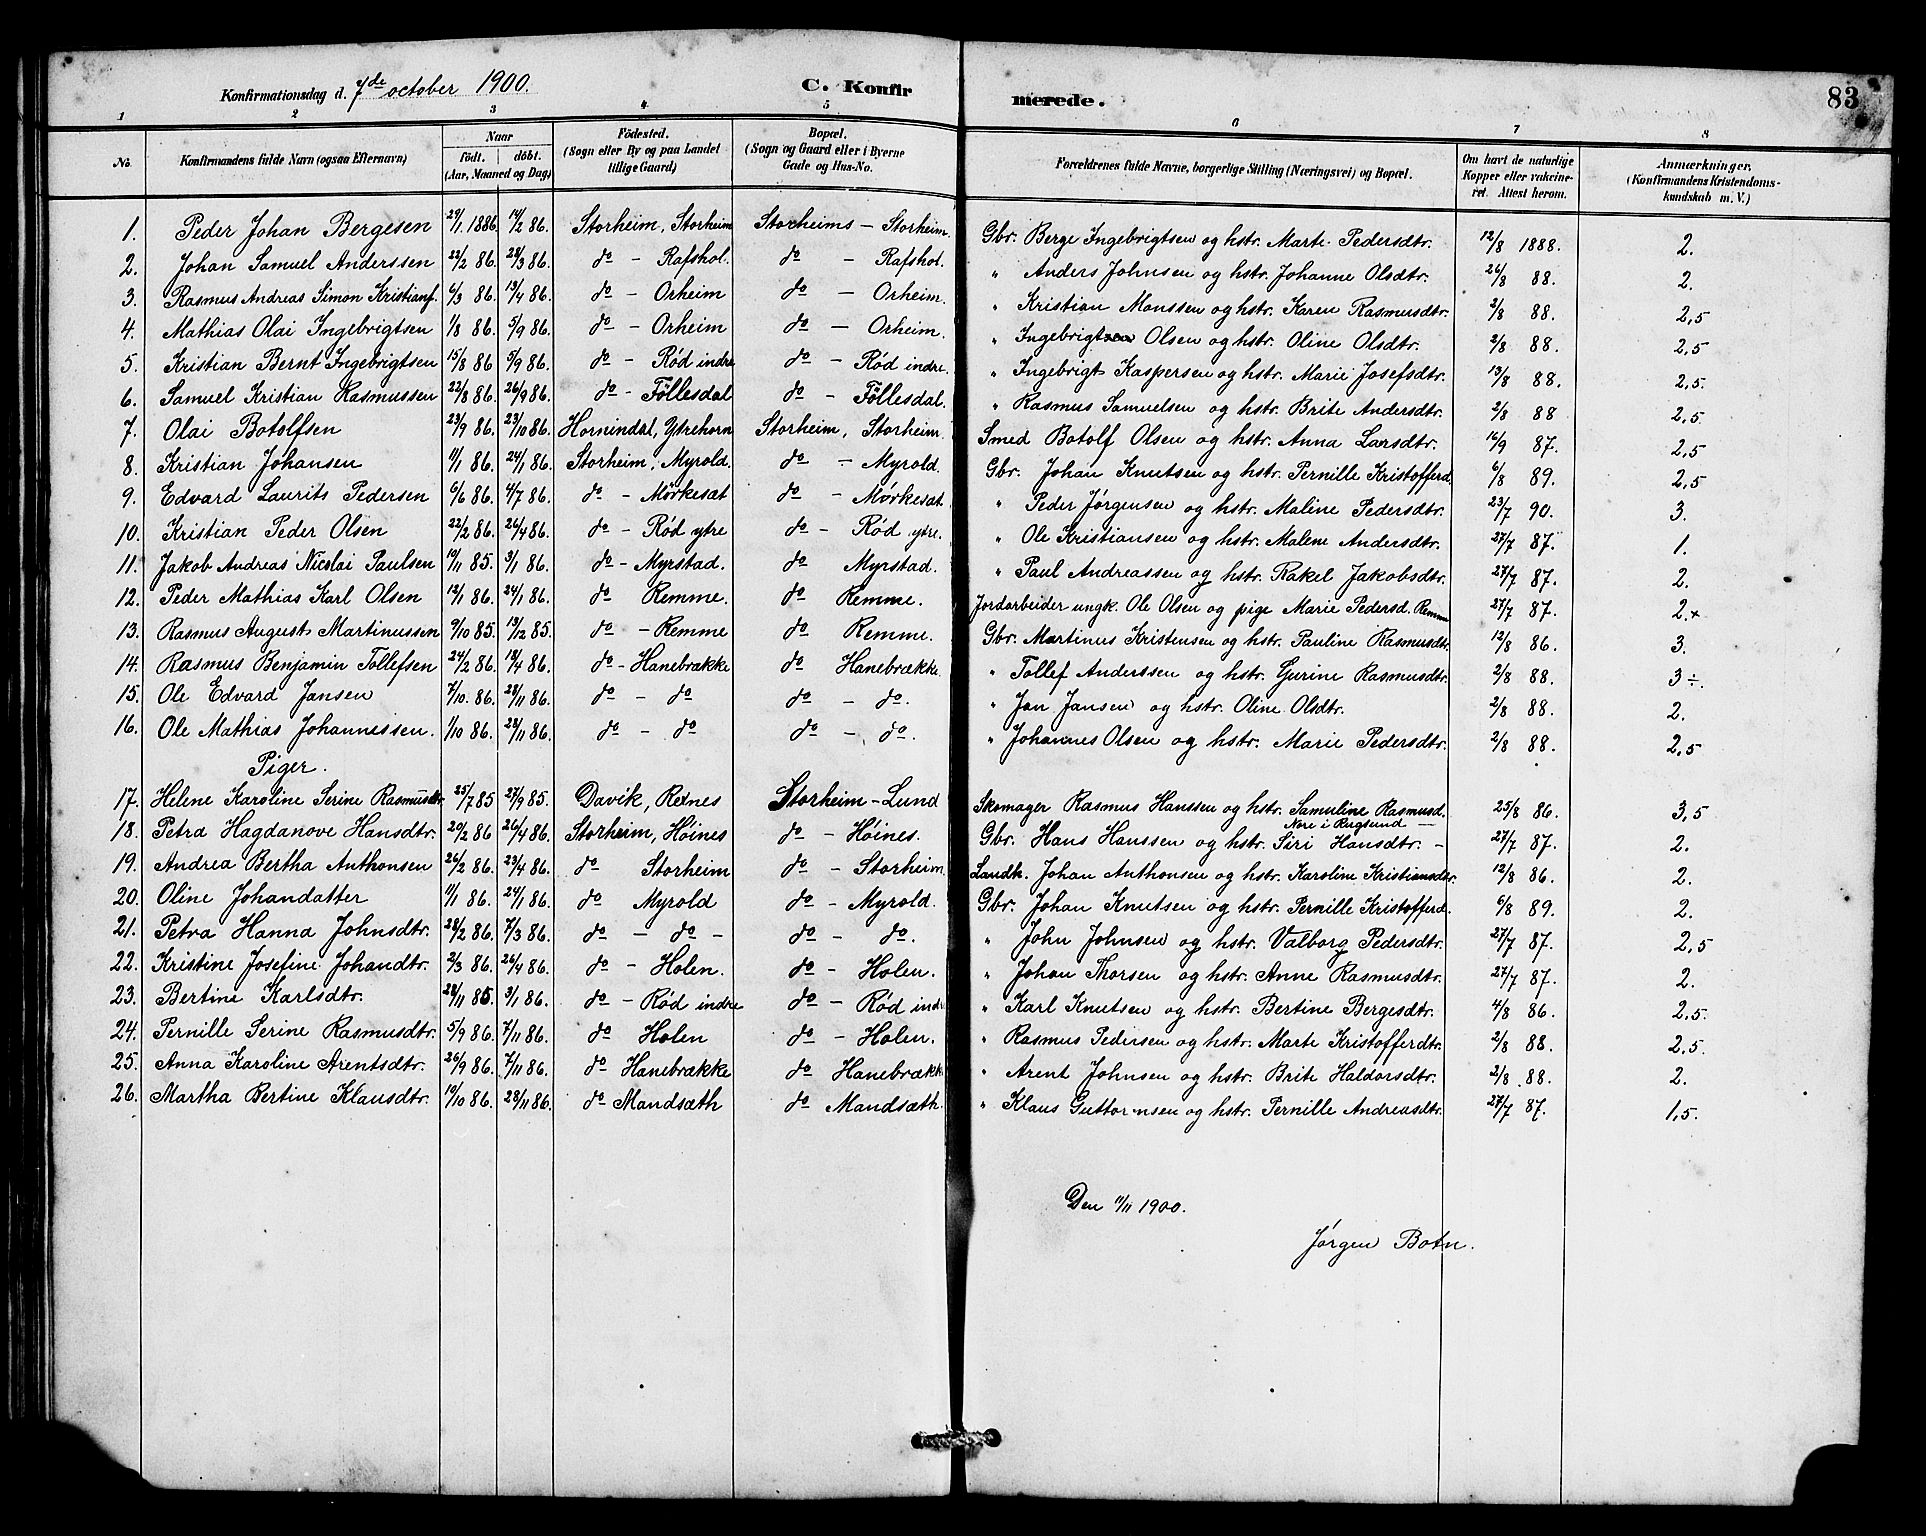 Konfirmationsdag d. 7de october 1900. C. Konfirmerede. 83
1 2 3 4 5 6 7 8
No. Konfirmandens fulde Navn (ogsaa Efternavn) Naar födt. döbt. (Aar, Maaned og Dag) Födested. (Sogn eller By og paa Landet tillige Gaard) Bopæl. (Sogn og Gaard eller i Byerne Gade og Hus-No. Forældrenes fulde Navne, borgerlige Stilling (Næringsvei) og Bopæl. Om havt de naturlige Kopper eller vakcineret. Attest herom. Anmærkninger, (Konfirmandens Kristendomskundskab m. V.)
1. Peder Johan Bergesen 29/1. 1886. 14/2 86. Storheim, Storheim Storheims – Storheim. Gbr. Berge Ingebrigtsen og hstr. Marte Pedersdtr. 12/8 1888. 2.
2. Johan Samuel Anderssen 22/2 86. 28/3 86. do – Rafshol. do – Rafshol. " Anders Johnsen og hstr. Johanne Olsdtr. 26/8 88. 2.
3. Rasmus Andreas Simon Kristianf. 6/3 86. 13/4 86. do – Orheim do – Orheim. " Kristian Monssen og hstr. Karen Rasmusdtr. 2/8 88. 2,5
4. Mathias Olai Ingebrigtsen 1/8 86. 5/9 86. do – Orheim do – Orheim. " Ingebrigt Olsen og hstr. Oline Olsdtr. 2/8 88. 2,5
5. Kristian Bernt Ingebrigtsen 15/8 86 5/9 86. do – Ród indre do – Ród indre. " Ingebrigt Kaspersen og hstr. Marie Josefsdtr. 13/8 88. 2,5.
6. Samuel Kristian Rasmussen 22/8 86. 26/9 86. do – Föllesdal do – Föllesdal. " Rasmus Samuelsen og hstr. Brite Andersdtr. 2/8 88 2,5.
7. Olai Botolfsen 23/9 86. 23/10 86. Hornindal, Ytrehorn Storheim, Storheim. Smed Botolf Olsen og hstr. Anna Larsdtr. 16/9 87. 2,5
8. Kristian Johansen 11/1 86. 24/1 86. Storheim, Myrold. do – Myrold. Gbr. Johan Knutsen og hstr. Pernille Kristofferd. 6/8 89. 2,5
9. Edvard Laurits Pedersen 6/6 86. 4/7 86. do – Mórkesat do – Mórkesat. " Peder Jórgensen og hstr. Maline Pedersdtr. 23/7 90. 3.
10. Kristian Peder Olsen 22/2 86. 26/4 86. do – Ród ytre do – Ród ytre. " Ole Kristiansen og hstr. Malene Andersdtr. 27/7 87. 1.
11. Jakob Andreas Nicolai Paulsen 10/11 85. 3/1 86. do – Myrstad. do Myrstad. " Paul Andreassen og hstr. Rakel Jakobsdtr. 27/7 87. 2.
12. Peder Mathias Karl Olsen 12/1 86. 24/1 86. do Remme. do Remme. Jordarbeider ungk. Ole Olsen og pige Marie Pedersd. Remme 27/7 87. 2.+
13. Rasmus August Martinussen 9/10 85. 13/12 85. do – Remme do Remme. Gbr. Martinus Kristensen og hstr. Pauline Rasmusdtr. 12/8 86. 3.
14. Rasmus Benjamin Tollefsen 24/2 86. 18/4 86. do – Hanebrække do Hanebrække. " Tollef Anderssen og hstr. Gurine Rasmusdtr. 2/8 88. 3÷.
15. Ole Edvard Jansen 7/10. 86. 28/11 86. do – do do – do. " Jan Jansen og hstr. Oline Olsdtr. 2/8 88. 2.
16. Ole Mathias Johannessen. 1/10 86. 28/11 86. do – do do – do. " Johannes Olsen og hstr. Marie Pedersdtr. 2/8 88. 2,5
Piger.
17. Helene Karoline Serine Rasmusdtr. 25/7 85 27/9 85. Davik, Rexnes Storheim – Lund Skomager Rasmus Hanssen og hstr. Samuline Rasmusd. 25/8 86. 3,5
18. Petra Hagdanove Hansdtr. 20/2 86 26/4 86. Storheim, Hóines do – Hóines. Gbr. Hans Hanssen og hstr. Siri Hansdtr. – 27/7 87. 2.
19. Andrea Bertha Anthonsen 26/2 86. 23/4 86. do Storheim do – Storheim. Landh. Johan Anthonsen og hstr. Karoline Kristiansdtr. 12/8 86. 2.
20. Oline Johandatter 11/1 86. 24/1 86. do Myrold do – Myrold. Gbr. Johan Knutsen og hstr. Pernille Kristofferd. 6/8 89. 2.
21. Petra Hanna Johnsdtr. 28/2 86. 7/3 86. do – do – do – do. " John Johnsen og hstr. Valborg Pedersdtr. 27/7 87. 2,5
22. Kristine Josefine Johandtr. 2/3 86. 26/4 86. do – Holen. do – Holen. " Johan Thorsen og hstr. Anne Rasmusdtr. 27/7 87. 2.
23. Bertine Karlsdtr. 28/11 85. 3/1 86. do – Ród indre do – Ród indre " Karl Knutsen og hstr. Bertine Bergesdtr. 4/8 86. 2,5.
24. Pernille Serine Rasmusdtr. 5/9 86. 7/11 86. do Holen do – Holen. " Rasmus Pedersen og hstr. Marte Kristofferdtr. 2/8 88. 2,5.
25. Anna Karoline Arentsdtr. 26/9 86. 7/11 86. do Hanebrække do Hanebrække " Arent Johnsen og hstr. Brite Haldorsdtr. 2/8 88. 2.
26. Martha Bertine Klausdtr. 10/10 86. 28/11 86. do Mandsæth do Mandsæth. " Klaus Guttormsen og hstr. Pernille Andreasdtr. 27/7 87. 1,5.
Den 11/11 1900.
Jórgen Botn.